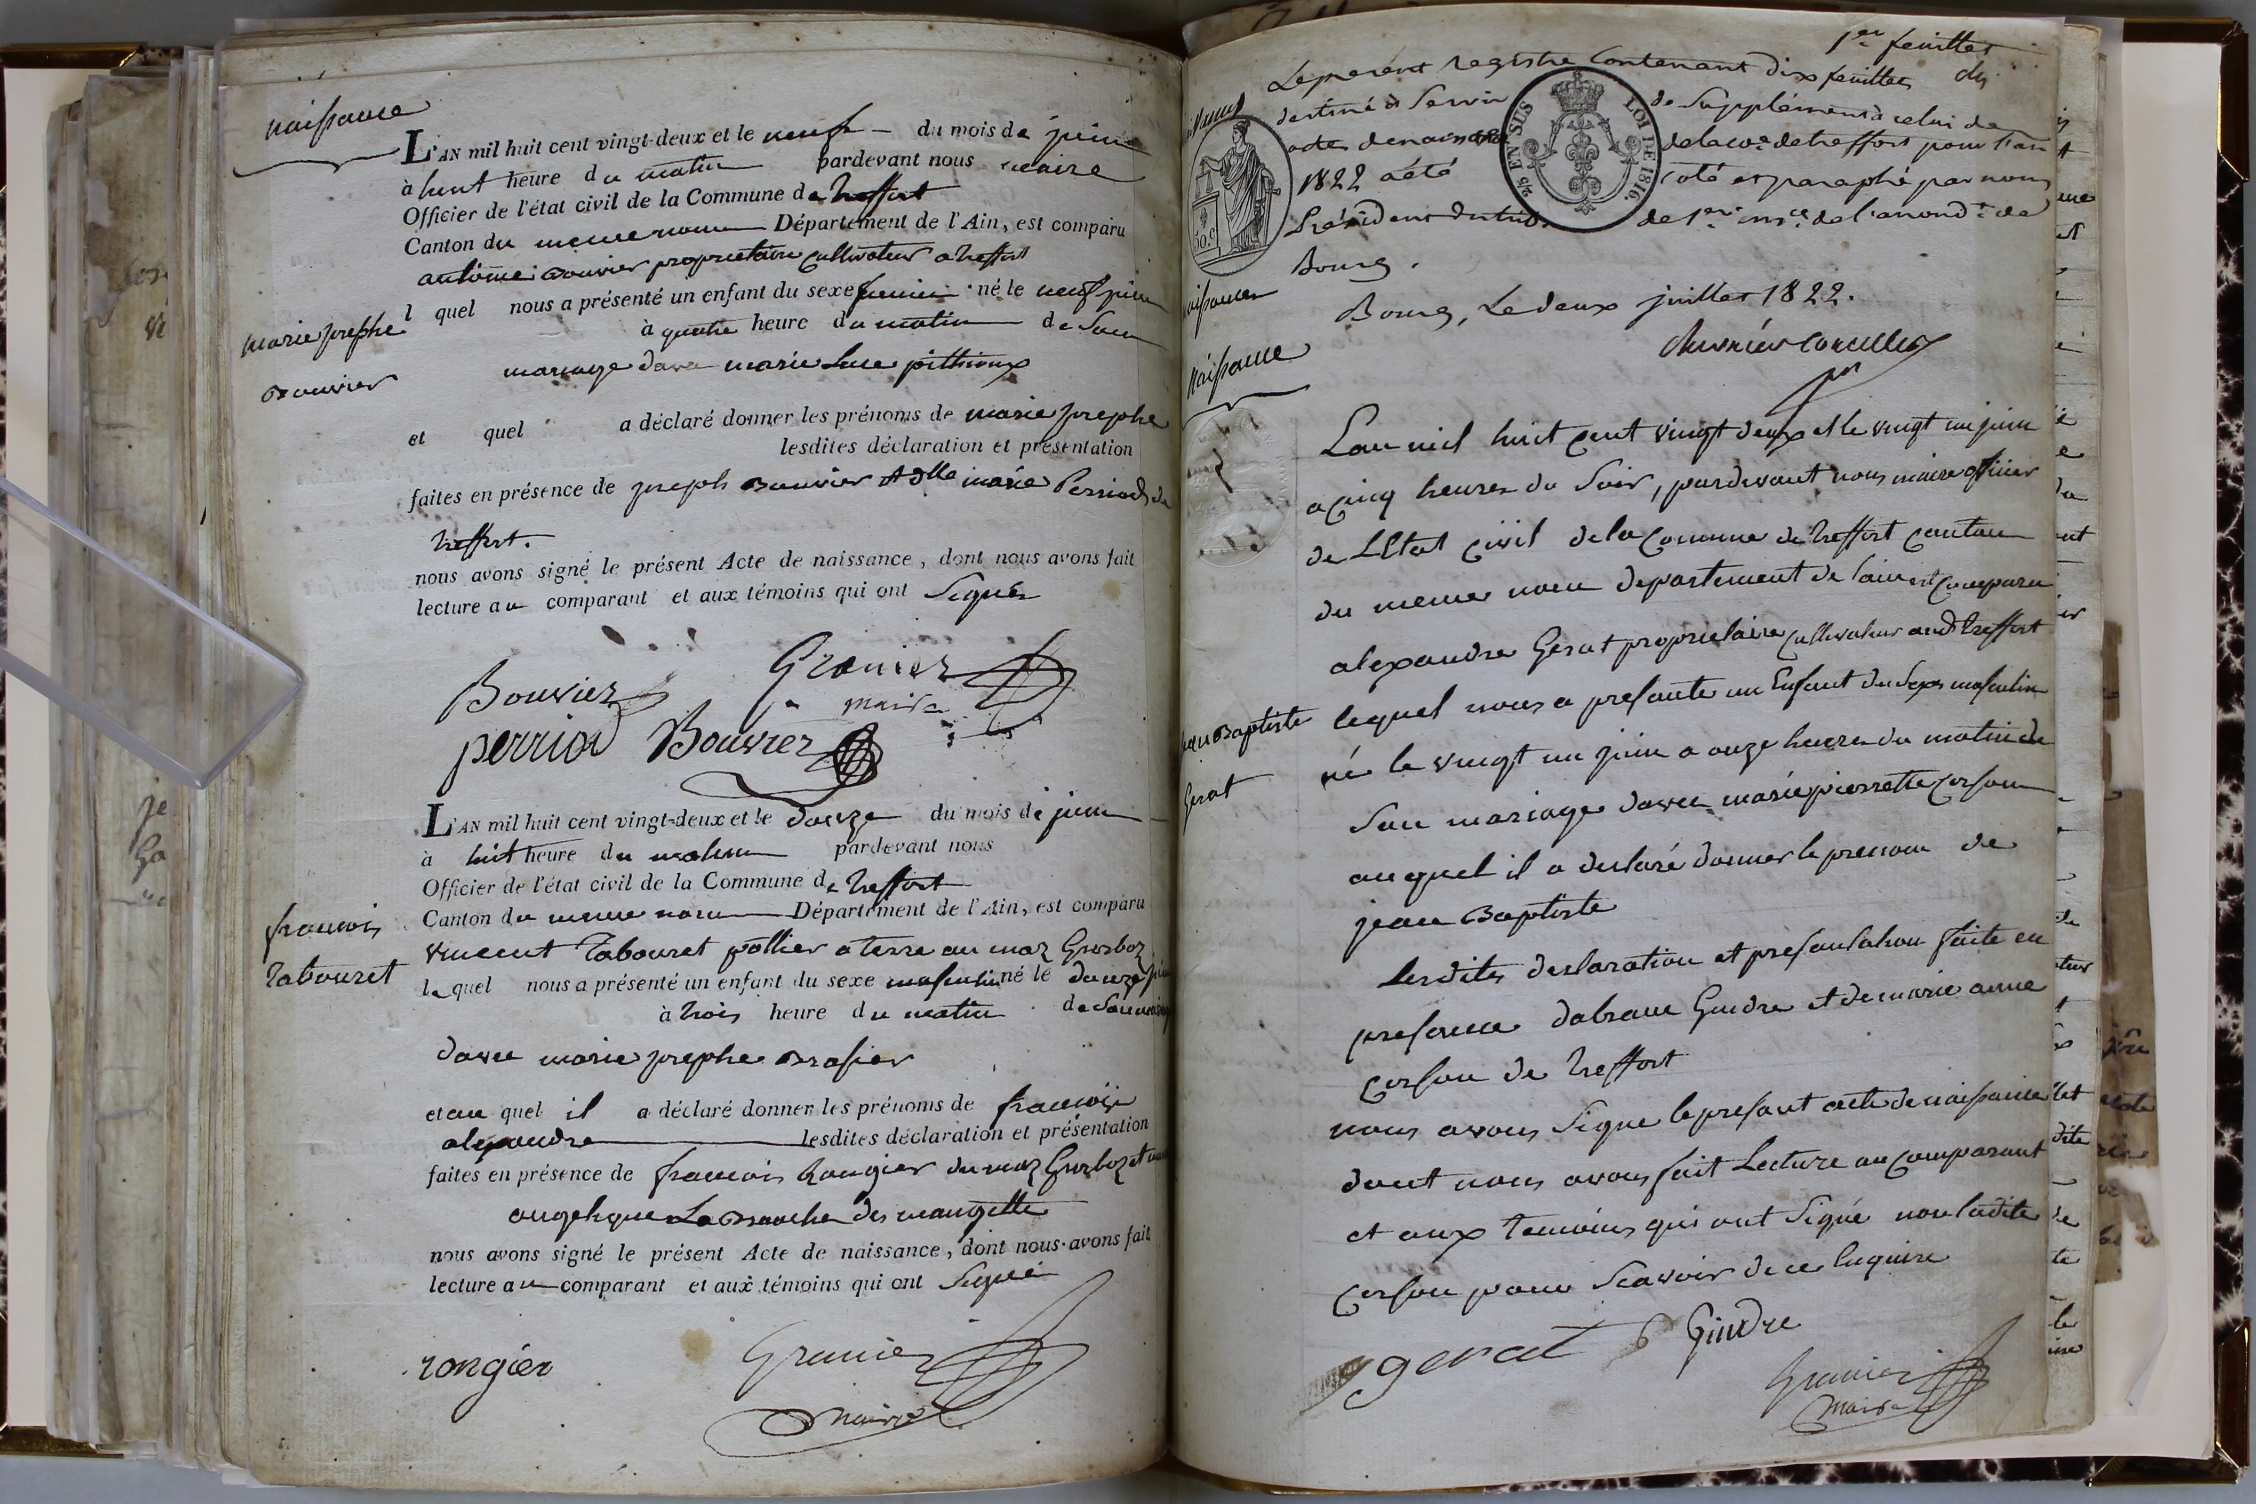 naissance
L'AN mil huit cent vingt-deux et le neuf du mois de juin
à huit heure du matin pardevant nous maire
Officier de l'état civil de la Commune de treffort
Canton du meme nom Département de l'Ain, est comparu
antoine Bouvier proprietaire cultivateur a treffort
l quel nous a présenté un enfant du sexe feminin né le neuf juin
marie josephe
à quatre heure du matin de Son
mariage davec marie Luce pithioux
Bouvier
et quel a déclaré donner les prénoms de marie josephe
lesdites déclaration et présentation
faites en présence de joseph Bouvier et dlle marie Perriod de
treffort.
nous avons signé le présent Acte de naissance, dont nous avons fait
lecture au comparant et aux témoins qui ont Signé
Bouvier Granier
maire
perriod Bouvier
L'AN mil huit cent vingt-deux et le douze du mois de juin
à huit heure du matin pardevant nous
Officier de l'état civil de la Commune de treffort
Canton du meme nom Département de l'Ain, est comparu
francois
Tabouret
vincent Tabouret pottier a terre au maz Grosboz
lequel nous a présenté un enfant du sexe masculin né le douze juin
à trois heure du matin de Son mariage
davec marie josephe Brasier
et au quel il a déclaré donner les prénoms de francois
alexandre lesdites déclaration et présentation
faites en présence de francois Rongier du maz Grosboz et
angelique La Branche des mangette
nous avons signé le présent Acte de naissance, dont nous avons fait
lecture au comparant et aux témoins qui ont Signé
rongier Granier
maire
1er feuillet
Le present registre Contenant dix feuilles
destiné à Servir de Supplément à celui des
actes de naissance de la coe. de treffort pour l'an
1822 a été coté et paraphé par nous
Président du trib. de 1ere ince. de l'arrondt. de
Bourg.
EN SUS
LOI DE 1816.
50.c
Bourg, Le deux juillet 1822.
Naissance
Lan mil huit cent vingt deux et le vingt un juin
a cinq heures du Soir, pardevant nous maire officier
de LEtat civil de la Commune de treffort canton
du meme nom departement de lain est comparu
alexandre Gerat proprietaire cultivateur audt treffort
jean Baptiste
Gerat
lequel nous a presante un Enfant du Sexe masculin
né le vingt un juin a onze heures du matin de
Son mariage davec marie pierrette corsou
auquel il a declaré donner le prenom de
jean Baptiste
Lesdites declaration et presantation faite en
presence dabram Gindre et de marie anne
corsou de treffort
nous avons Signe le presant acte de naissance
dont nous avons fait Lecture au comparant
et aux temoins qui ont Signé non ladite
corsou pour Scavoir de ce Enquire
gerat Gindre
Granier
maire